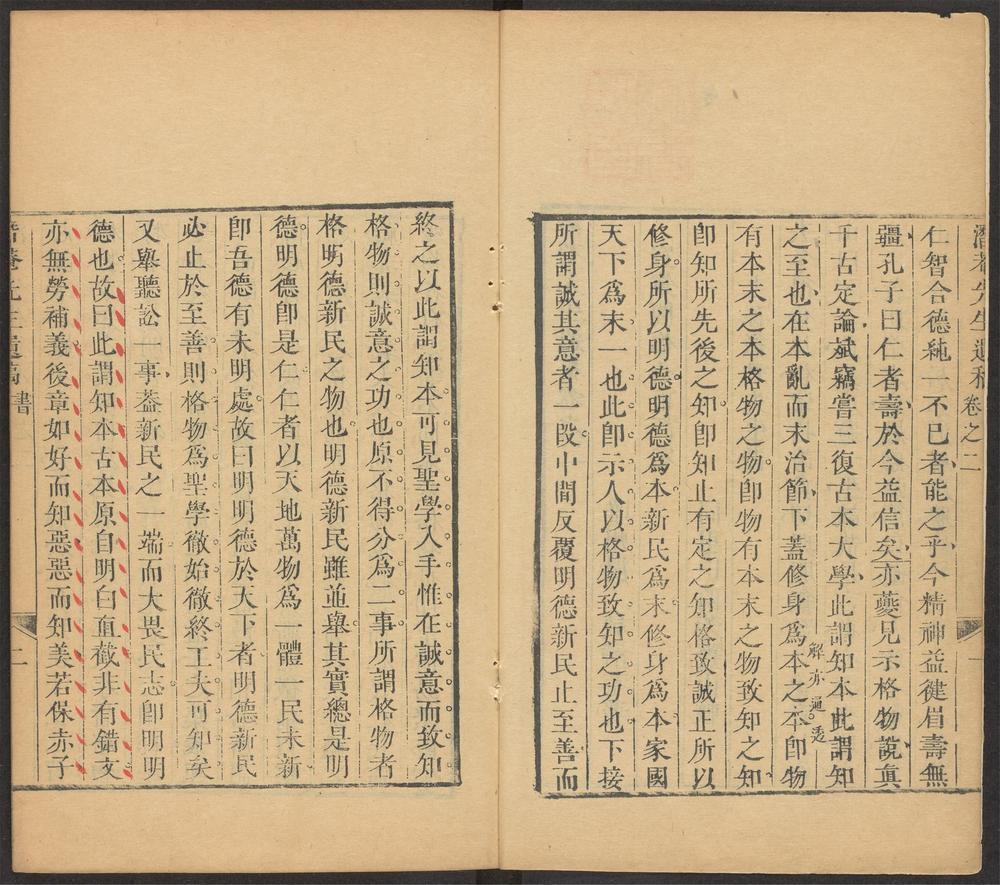 潛菴先生遺稿 卷之二 一
仁智合德純一不已者能之乎今精神益健眉壽無
疆孔子曰仁者壽於今益信矣亦夔見示格物說真
千古定論斌竊嘗三復古本大學此謂知本此謂知
之至也在本亂而末治節下蓋修身爲本之本即物
解亦通透
有本末之本格物之物即物有本末之物致知之知
即知所先後之知即知止有定之知格致誠正所以
修身所以明德明德爲本新民爲末修身爲本家國
天下爲末一也此即示人以格物致知之功也下接
所謂誠其意者一段中間反覆明德新民止至善而
終之以此謂知本可見聖學入手惟在誠意而致知
格物則誠意之功也原不得分爲二事所謂格物者
格明德新民之物也明德新民雖並舉其實總是明
德明德即是仁仁者以天地萬物爲一體一民未新
即吾德有未明處故曰明明德於天下者明德新民
必止於至善則格物爲聖學徹始徹終工夫可知矣
又舉聽訟一事葢新民之一端而大畏民志即明明
德也故曰此謂知本古本原自明白直截非有錯文
亦無勞補義後章如好而知惡惡而知美若保赤子
潛菴先生遺稿 書 二